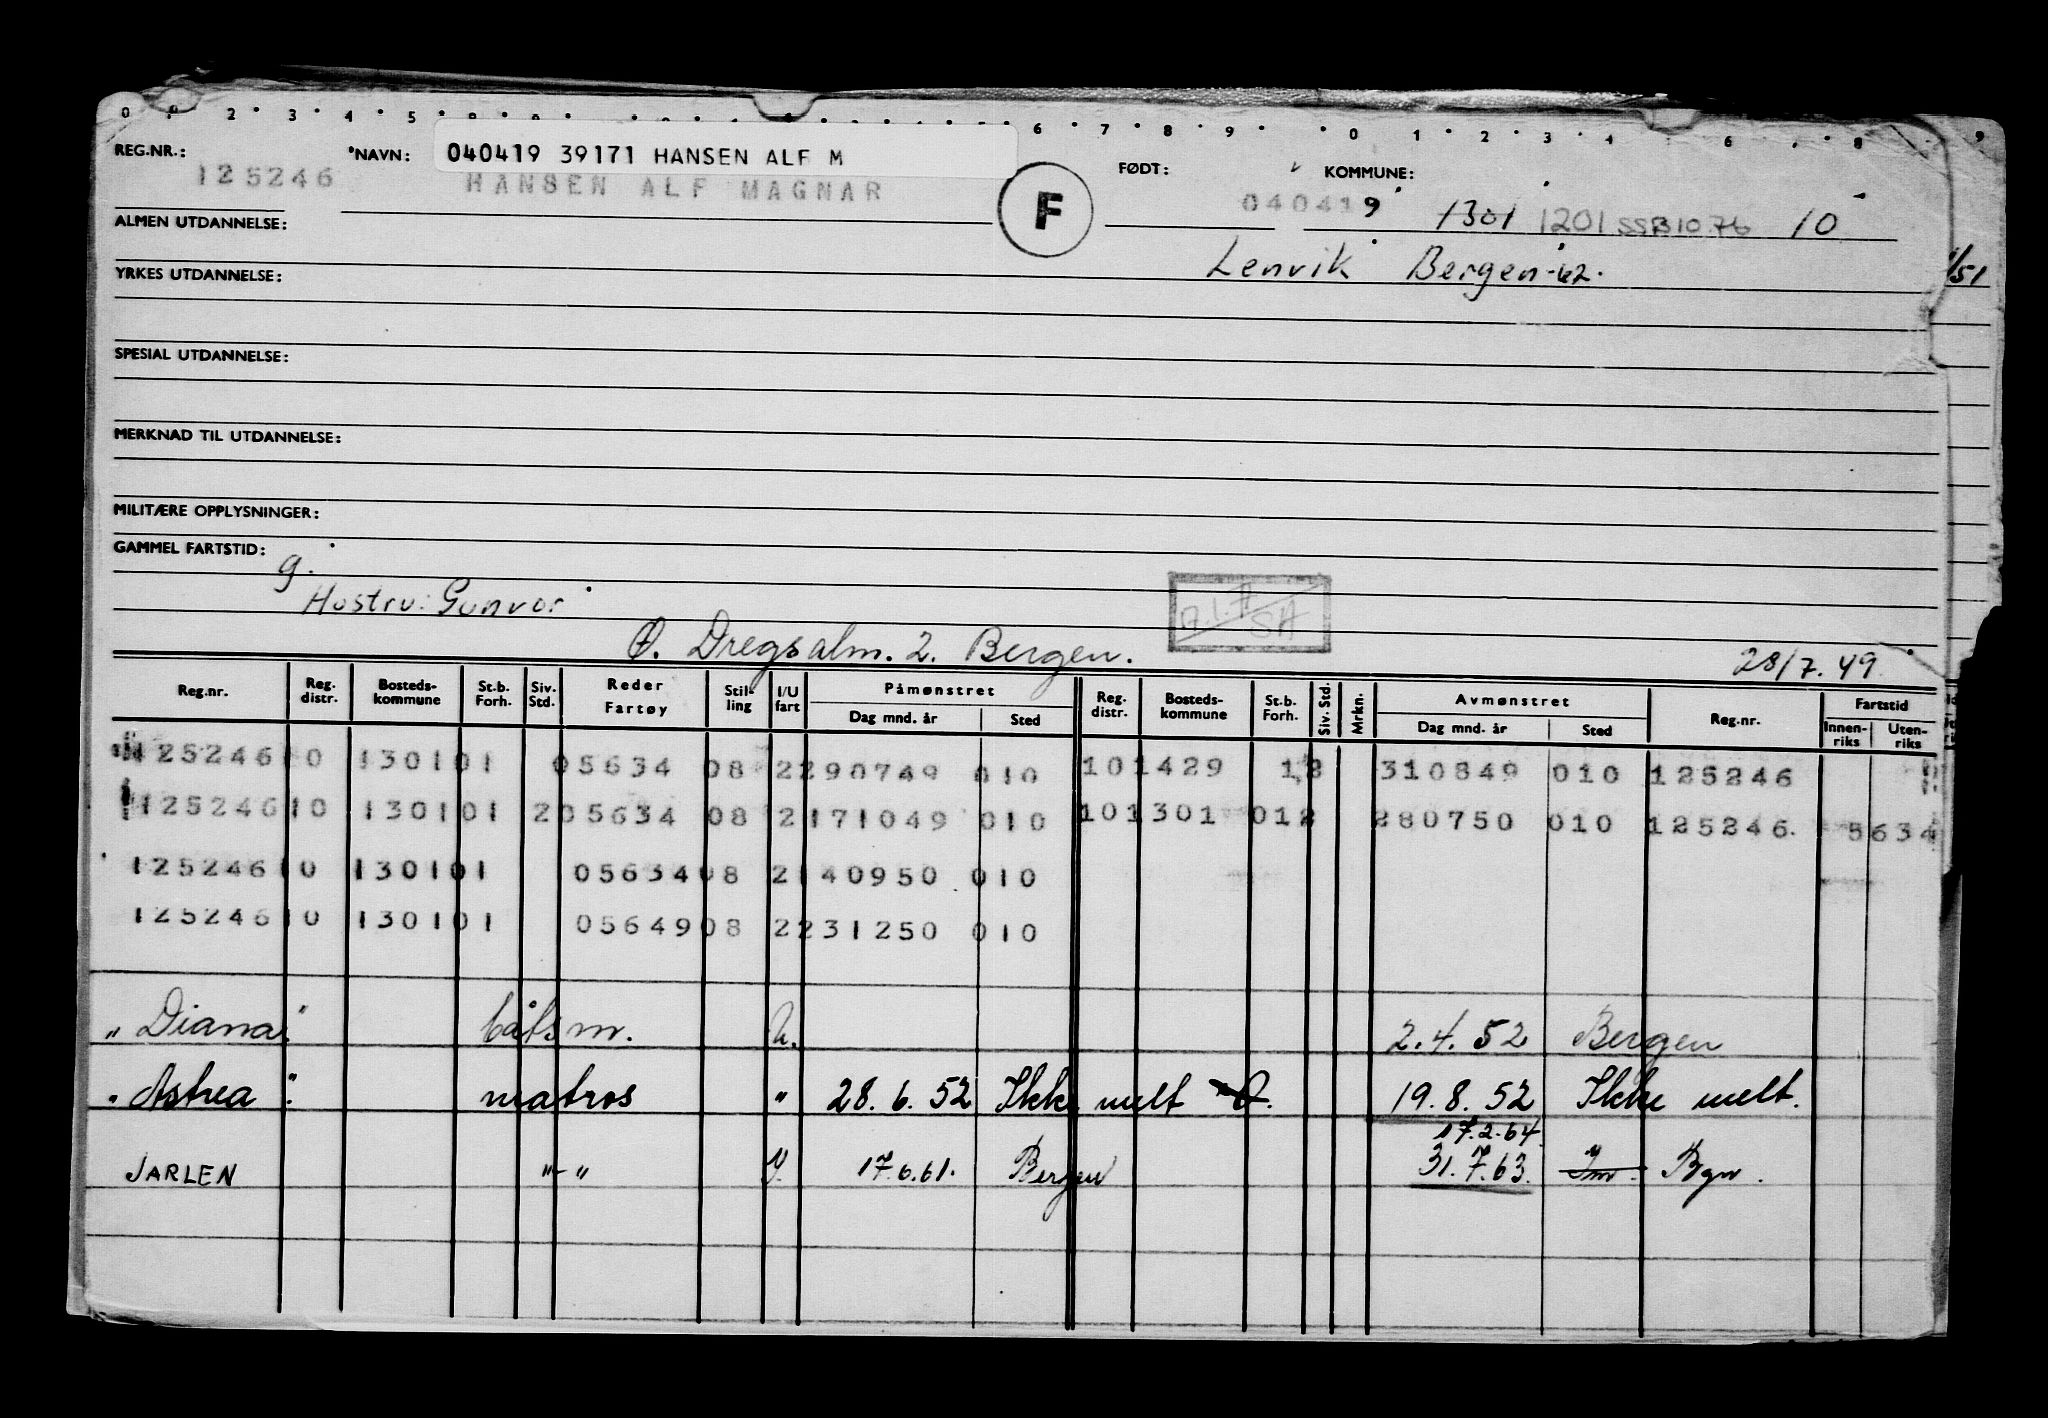 0 2 3 4 5 6 7 8 9 0 1 2 3 4 6 8 9
REG.NR.: NAVN: 040419 39171 HANSEN ALF M FØDT: KOMMUNE:
125246 HANSEN ALF MAGNAR F 040419 1301 1201 SSB 10.76 10
ALMEN UTDANNELSE:
Lenvik Bergen-62.
YRKES UTDANNELSE: /51
SPESIAL UTDANNELSE:
MERKNAD TIL UTDANNELSE:
MILITÆRE OPPLYSNINGER:
GAMMEL FARTSTID: g.
Hustru: Gunvor
Ø. Dregsalm. 2. Bergen. 28/7.49
Reg.nr. Reg. distr. Bosteds-kommune St.b. Forh. Siv. Std. Reder Fartøy Stil-ling I/U fart Påmønstret Dag mnd. år Sted Reg. distr. Bosteds-kommune St.b. Forh. Siv. Std. Mrkn. Avmønstret Dag mnd. år Sted Reg.nr. Fartstid Innen-riks Uten-riks
125246 10 1301 01 05634 08 2 290749 010 10 1429 1 2 310849 010 125246
125246 10 1301 01 2 05634 08 2 171049 010 10 1301 01 2 280750 010 125246 5634
125246 10 1301 01 05634 08 2 140950 010
125246 10 1301 01 05649 08 2 231250 010
"Diana" båtsm. U. 2.4.52 Bergen
"Astrea" matros " 28.6.52 Ikke melt 19.8.52 Ikke melt.
17.2.64
JARLEN "-" 17.6.61. Bergen 31.7.63. Bgn.